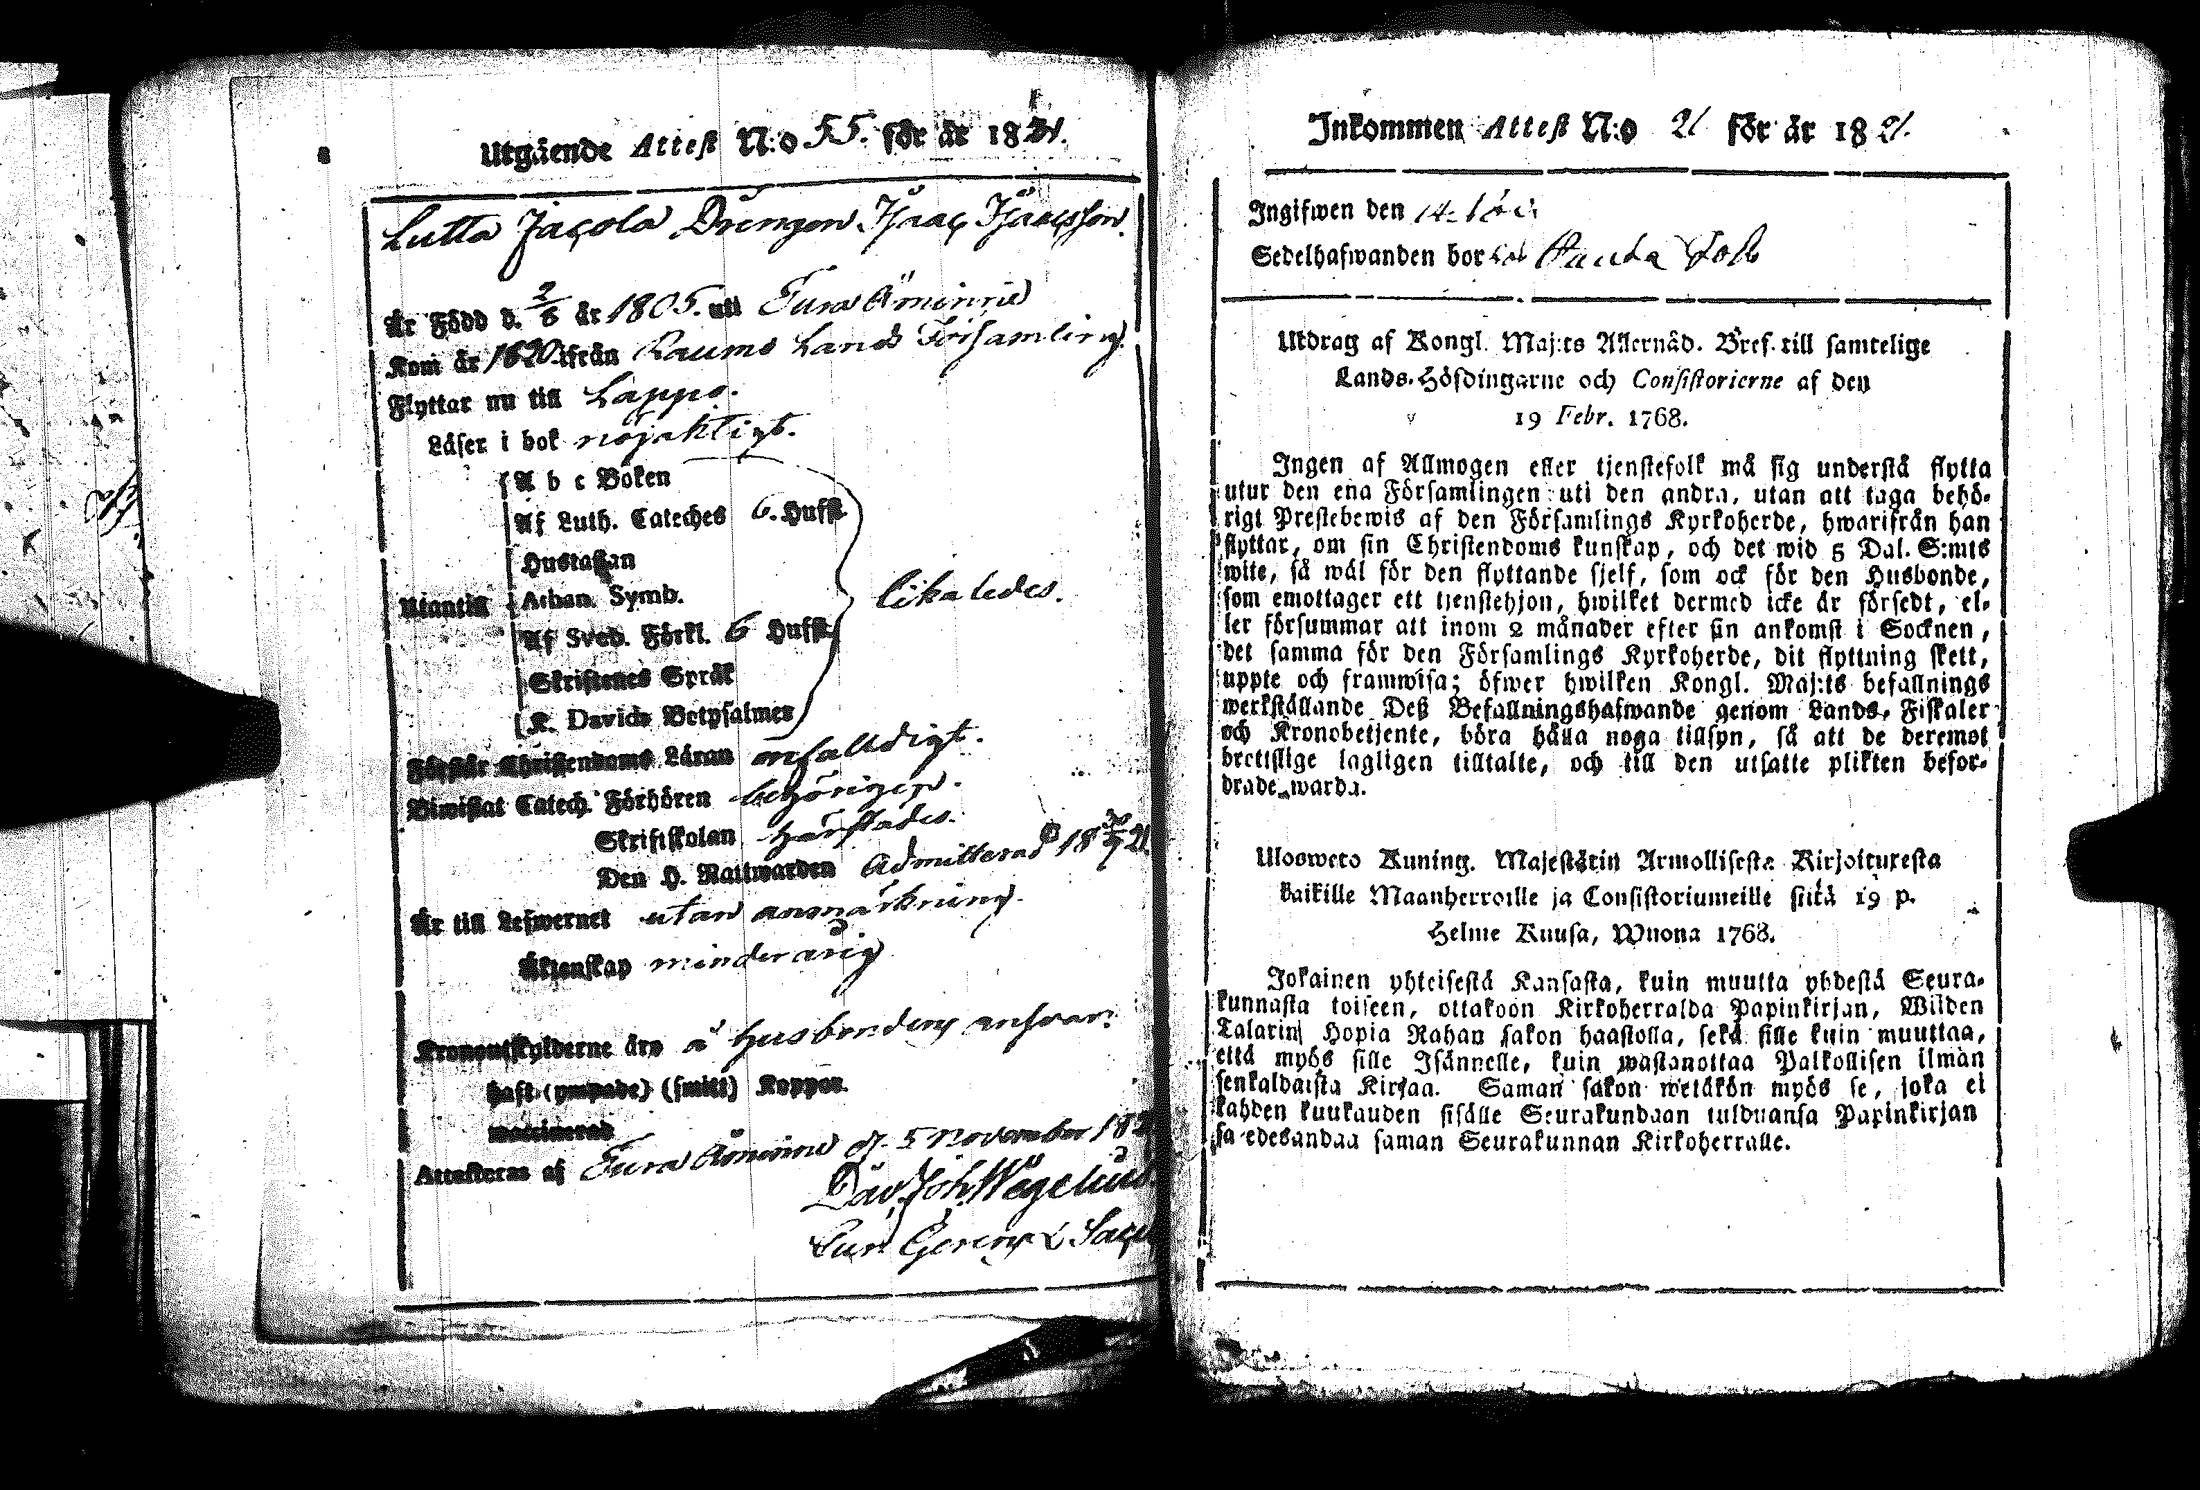 Utgående Attest N:o 55. för år 1821.
Lutta Jacola Drengen Isaac Isaacsson.
Är Född d. 2/6 år 1805. uti Eura Åminne
Kom år 1820 ifrån Raumo Lands Församling.
Flyttar nu till Lappo.
Läser i bok nöjaktigt.
A b c Boken
Af Luth. Cateches 6. Hufst.
Hustaflan
Utantill Athan. Symb. likaledes.
Af Sved. Förkl. 6 Hufst.
Skriftenes Språk
K. Davids Botpsalmer
Förstår Christendoms Läran enfalldigt.
Biwistat Catech. Förhören behörigen.
Skriftskolan härstädes.
Den H. Nattwarden Admitterad 18 21
Är till Lefwernet utan anmärkning.
Äktenskap minderårig
Kronoutskylderne äro å husbondens ansvar.
haft (ympade) (smitt) Koppor.
waccinerad
Attesteras af Eura Åminne d. 5 November 182
Dav. Joh. Wegelius.
Inkommen Attest N:o 21 för år 18 21.
Ingifwen den 14
Sedelhafwanden bor
Utdrag af Kongl. Maj:ts Allernåd. Bref till samtelige
Lands-Höfdingarne och Consistorierne af den
19 Febr. 1768.
Ingen af Allmogen eller tjenstefolk må sig understå flytta
utur den ena Församlingen uti den andra, utan att taga behö-
rigt Prestebewis af den Församlings Kyrkoherde, hwarifrån han
flyttar, om sin Christendoms kunskap, och det wid 5 Dal. S:mts
wite, så wäl för den flyttande sjelf, som ock för den Husbonde,
som emottager ett tjenstehjon, hwilket dermed icke är försedt, el-
ler försummar att inom 2 månader efter sin ankomst i Socknen,
det samma för den Församlings Kyrkoherde, dit flyttning skett,
uppte och framwisa; öfwer hwilken Kongl. Maj:ts befallnings
werkställande Deß Befallningshafwande genom Lands-Fiskaler
och Kronobetjente, böra hålla noga tillsyn, så att de deremot
brottslige lagligen tilltalte, och till den utsatte plikten befor-
drade warda.
Ulosweto Kuning. Majestätin Armollisesta Kirjoituxesta
kaikille Maanherroille ja Consistoriumeille siitä 19 p.
Helme Kuusa, Wuona 1768.
Jokainen yhteisestä Kansasta, kuin muutta yhdestä Seura-
kunnasta toiseen, ottakoon Kirkoherralda Papinkirjan, Wiiden
Talarin Hopia Rahan sakon haastolla, sekä sille kuin muuttaa,
että myös sille Isännelle, kuin wastanottaa Palkollisen ilman
senkaldaista Kirjaa. Saman sakon wetäkön myös se, joka ei
kahden kuukauden sisälle Seurakundaan tulduansa Papinkirjan
sa edesandaa saman Seurakunnan Kirkoherralle.